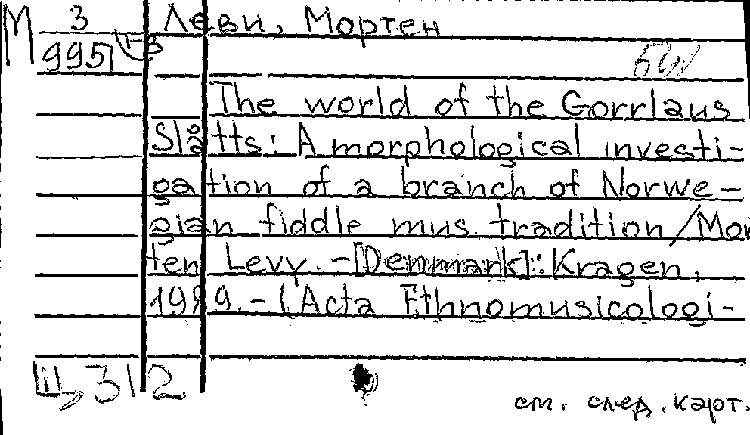 М 3 Леви, Мортен
9951
The world of the Gorrlaus
Slåtts: A morphological investi-
gation of a branch of Norwe-
gian fiddle mus tradition/Mor
ten Levy. -[Denmark]: Kragen,
1989. - (Acta Ethnomusicologi-
312
см. след. карт.